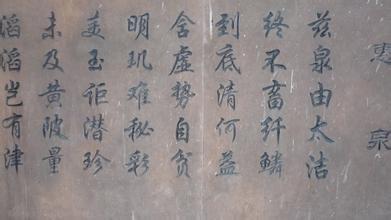 惠泉
兹泉由太洁
终不畜纤鳞
到底清何益
含虚势自贫
明玑难秘彩
美玉讵潜珍
未及黄陂量
滔滔岂有津